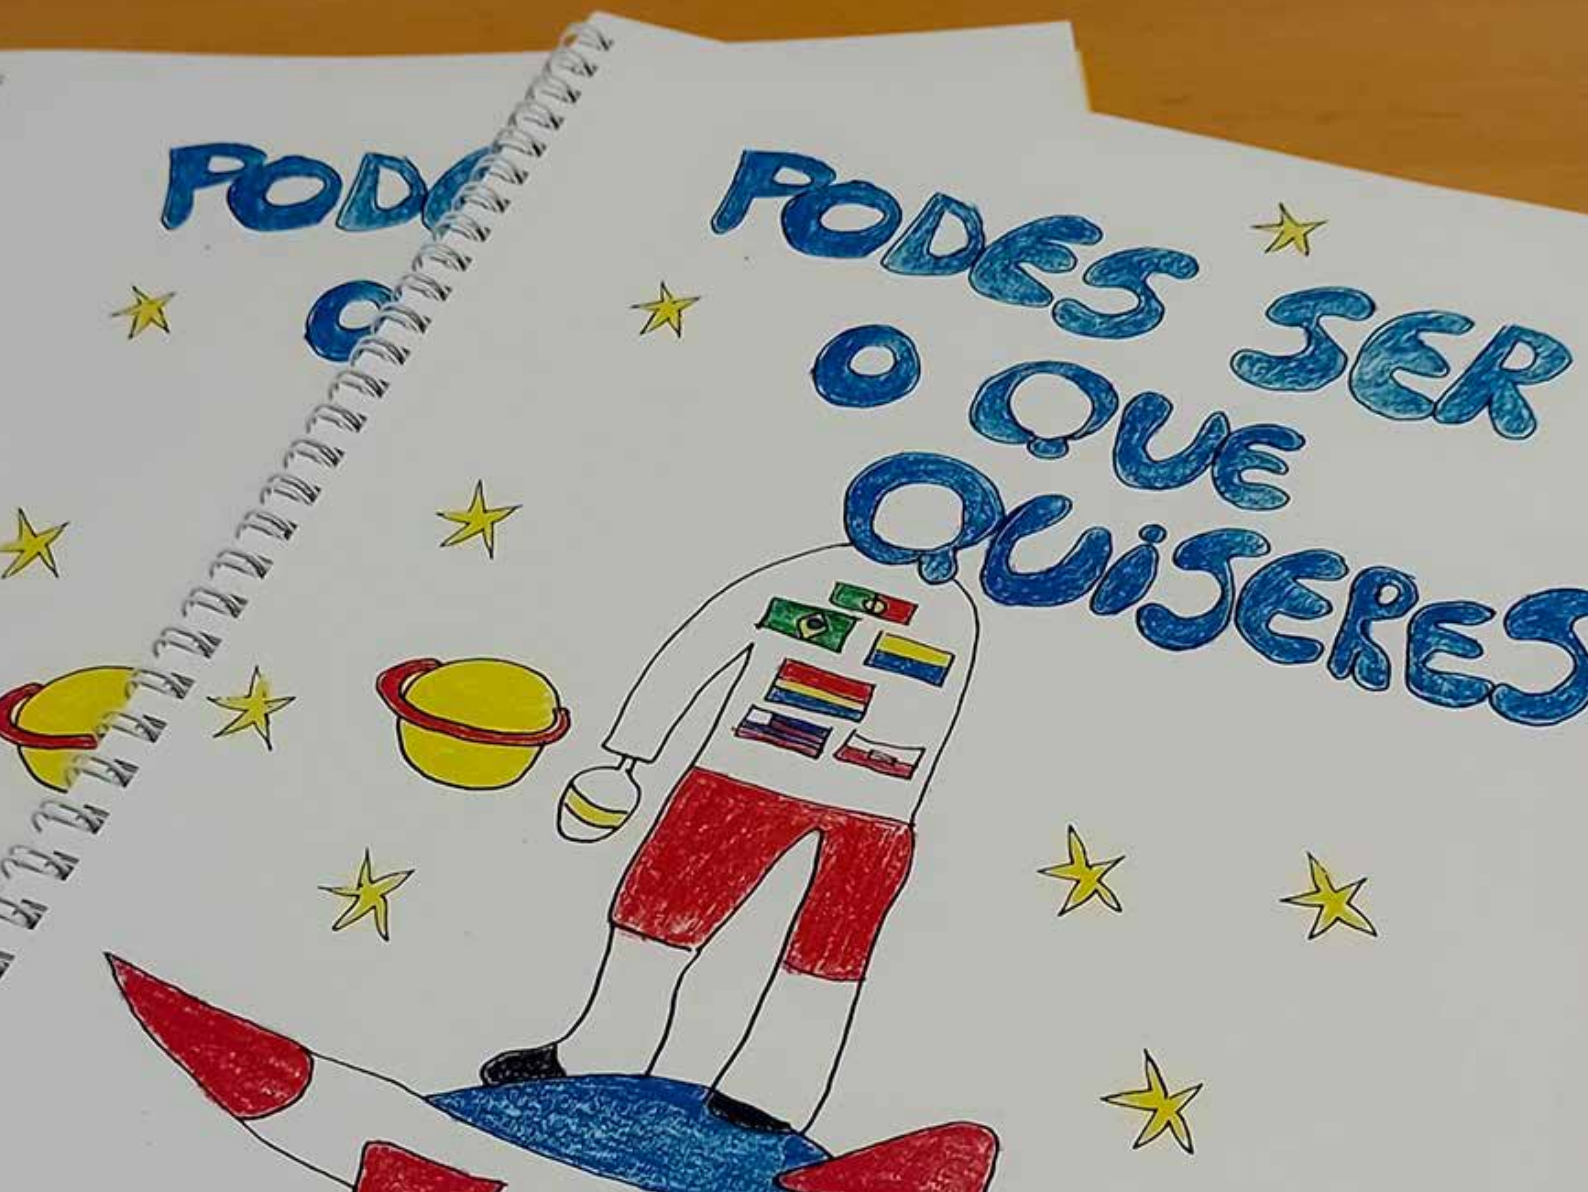 PODES SER
O QUE
QUISERES